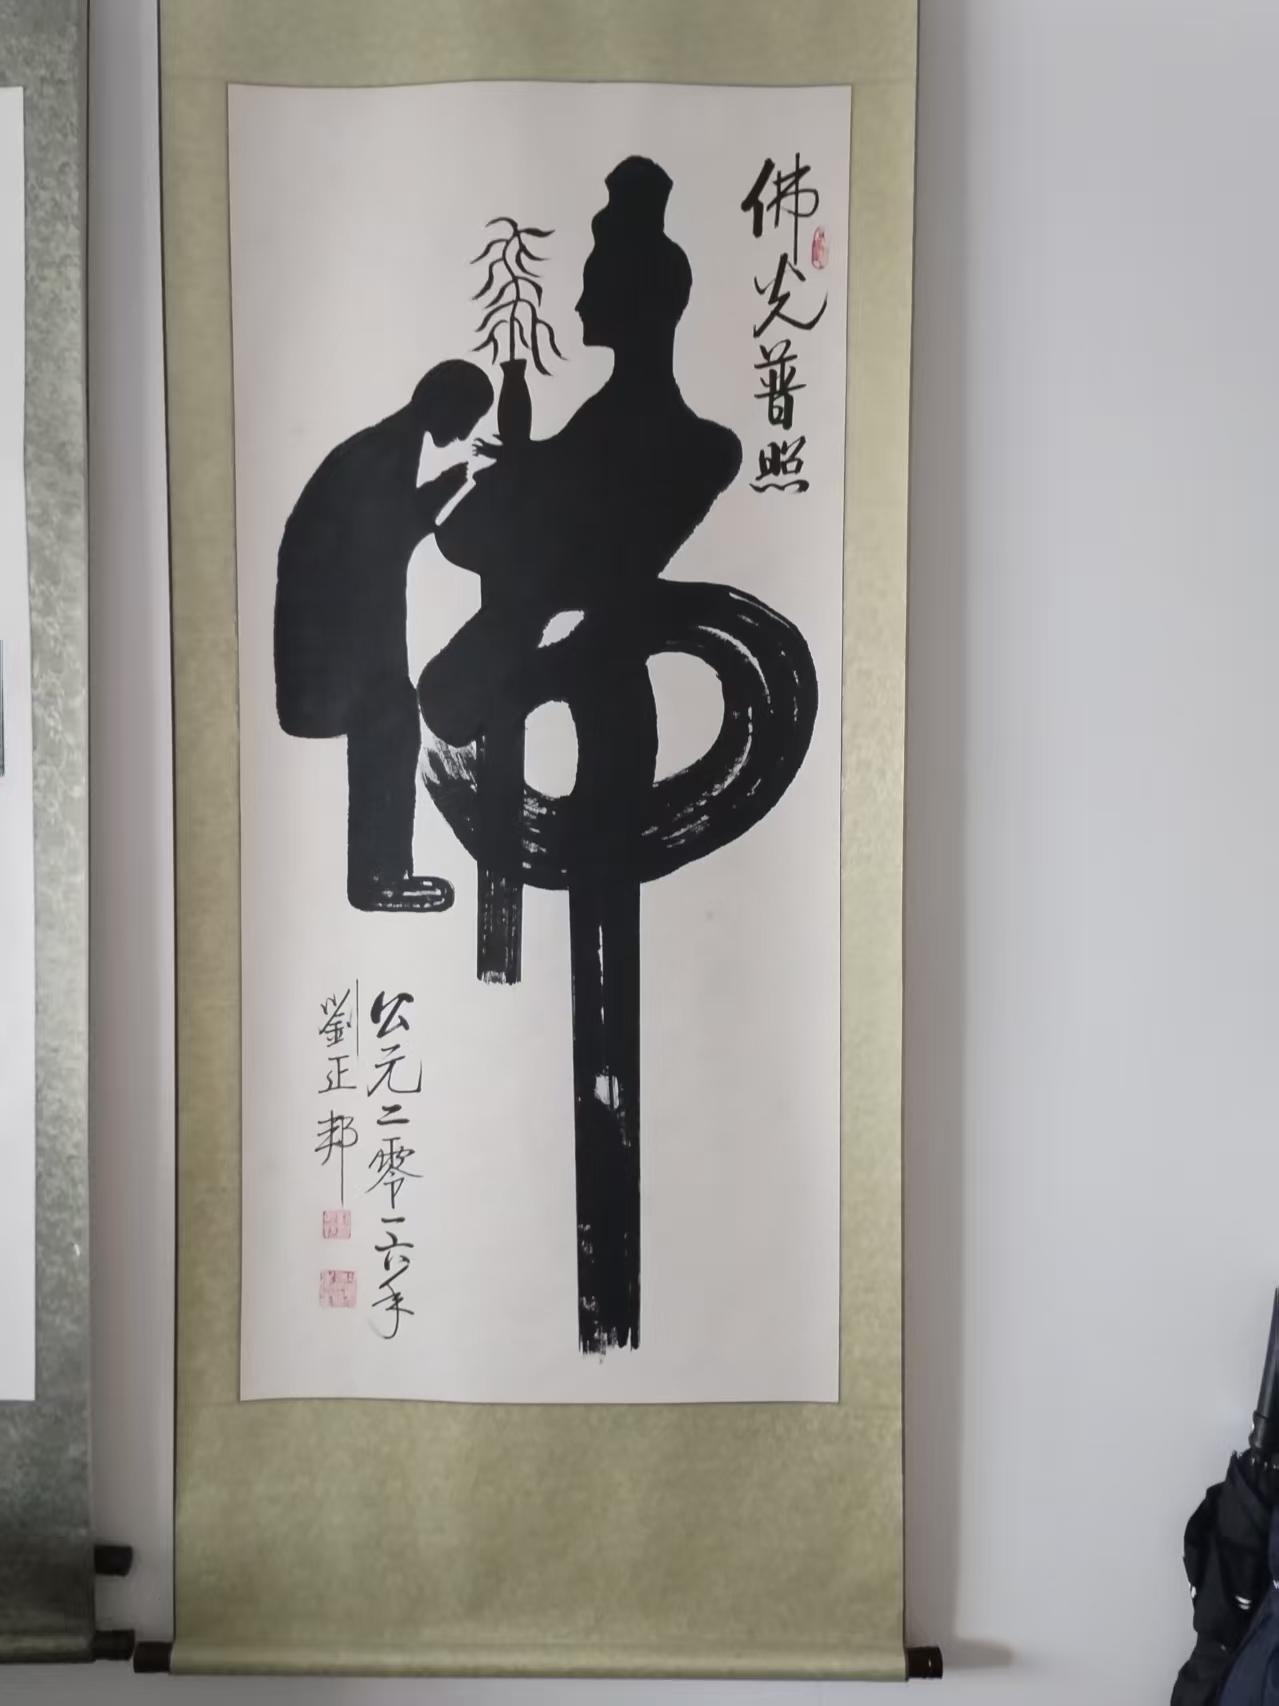 佛光普照
公元二零一六年
劉正邦